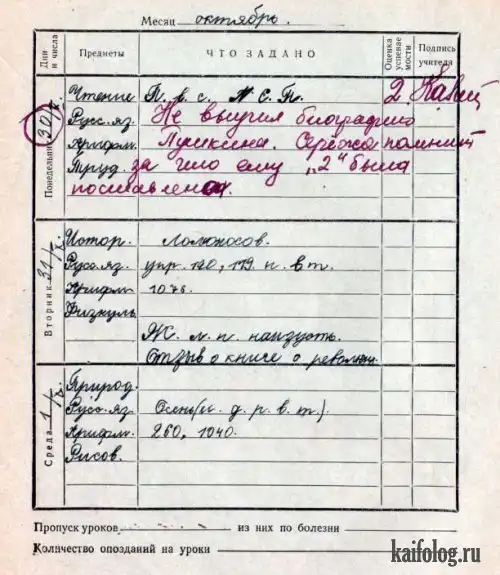 Месяц октябрь.
Дни и числа Предметы ЧТО ЗАДАНО Оценка успеваемости Подпись учителя
Понедельник 30/X
Чтение П. в. с. М. С. П. 2
Русс. яз. Не выучил биографию
Арифм. Пушкина. Серёжа помнит
Труд. за что ему „2" была
поставлена.
Вторник 31/X
Истор. Ломоносов.
Русс. яз. упр. 120, 119. н. в т.
Арифм. 1076.
Физкуль
Ж. м. п. наизусть.
Отзыв о книге о револ
Среда 1/X
Природ.
Русс. яз. Осень (н. д. р. в. т.)
Арифм. 260, 1040.
Рисов.
Пропуск уроков из них по болезни
Количество опозданий на уроки
kaifolog.ru